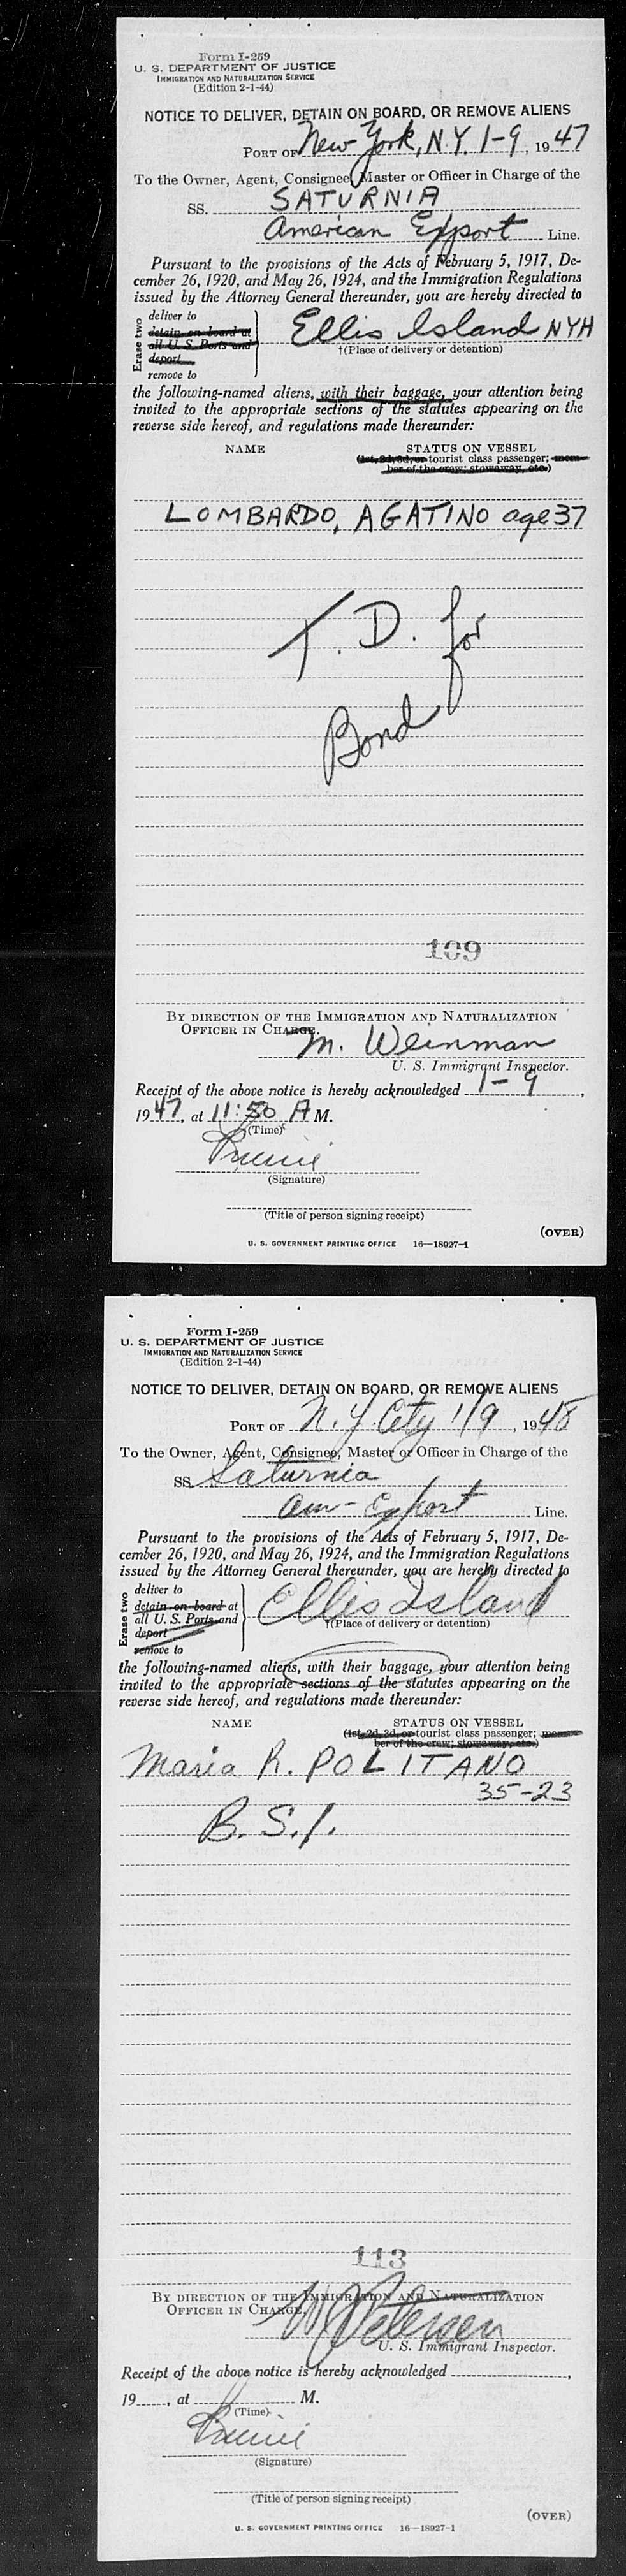 Form I-259
U. S. DEPARTMENT OF JUSTICE
IMMIGRATION AND NATURALIZATION SERVICE
(Edition 2-1-44)
NOTICE TO DELIVER, DETAIN ON BOARD, OR REMOVE ALIENS
PORT OF New York, N.Y. 1-9, 1947
To the Owner, Agent, Consignee, Master or Officer in Charge of the
SS. SATURNIA
American Export Line.
Pursuant to the provisions of the Acts of February 5, 1917, De-
cember 26, 1920, and May 26, 1924, and the Immigration Regulations
issued by the Attorney General thereunder, you are hereby directed to
Erase two
deliver to
detain on board at
all U. S. Ports and
deport
remove to
Ellis Island NYH
†(Place of delivery or detention)
the following-named aliens, with their baggage, your attention being
invited to the appropriate sections of the statutes appearing on the
reverse side hereof, and regulations made thereunder:
NAME STATUS ON VESSEL
(1st, 2d, 3d, or tourist class passenger; mem-
ber of the crew; stowaway, etc.)
LOMBARDO, AGATINO age 37
T. D. for
Bond
109
BY DIRECTION OF THE IMMIGRATION AND NATURALIZATION
OFFICER IN CHARGE.
M. Weinman
U. S. Immigrant Inspector.
Receipt of the above notice is hereby acknowledged 1-9,
1947, at 11:50 A M.
(Time)
(Signature)
(Title of person signing receipt)
(OVER)
U. S. GOVERNMENT PRINTING OFFICE 16—18027-1
Form I-259
U. S. DEPARTMENT OF JUSTICE
IMMIGRATION AND NATURALIZATION SERVICE
(Edition 2-1-44)
NOTICE TO DELIVER, DETAIN ON BOARD, OR REMOVE ALIENS
PORT OF N. Y. City 1/9, 1948
To the Owner, Agent, Consignee, Master or Officer in Charge of the
SS. Saturnia
Am- Export Line.
Pursuant to the provisions of the Acts of February 5, 1917, De-
cember 26, 1920, and May 26, 1924, and the Immigration Regulations
issued by the Attorney General thereunder, you are hereby directed to
Erase two
deliver to
detain on board at
all U. S. Ports and
deport
remove to
Ellis Island
†(Place of delivery or detention)
the following-named aliens, with their baggage, your attention being
invited to the appropriate sections of the statutes appearing on the
reverse side hereof, and regulations made thereunder:
NAME STATUS ON VESSEL
(1st, 2d, 3d, or tourist class passenger; mem-
ber of the crew; stowaway, etc.)
Maria R. POLITANO
35-23
B. S. I.
113
BY DIRECTION OF THE IMMIGRATION AND NATURALIZATION
OFFICER IN CHARGE.
Petersen
U. S. Immigrant Inspector.
Receipt of the above notice is hereby acknowledged ,
19 , at M.
(Time)
(Signature)
(Title of person signing receipt)
(OVER)
U. S. GOVERNMENT PRINTING OFFICE 16—18027-1